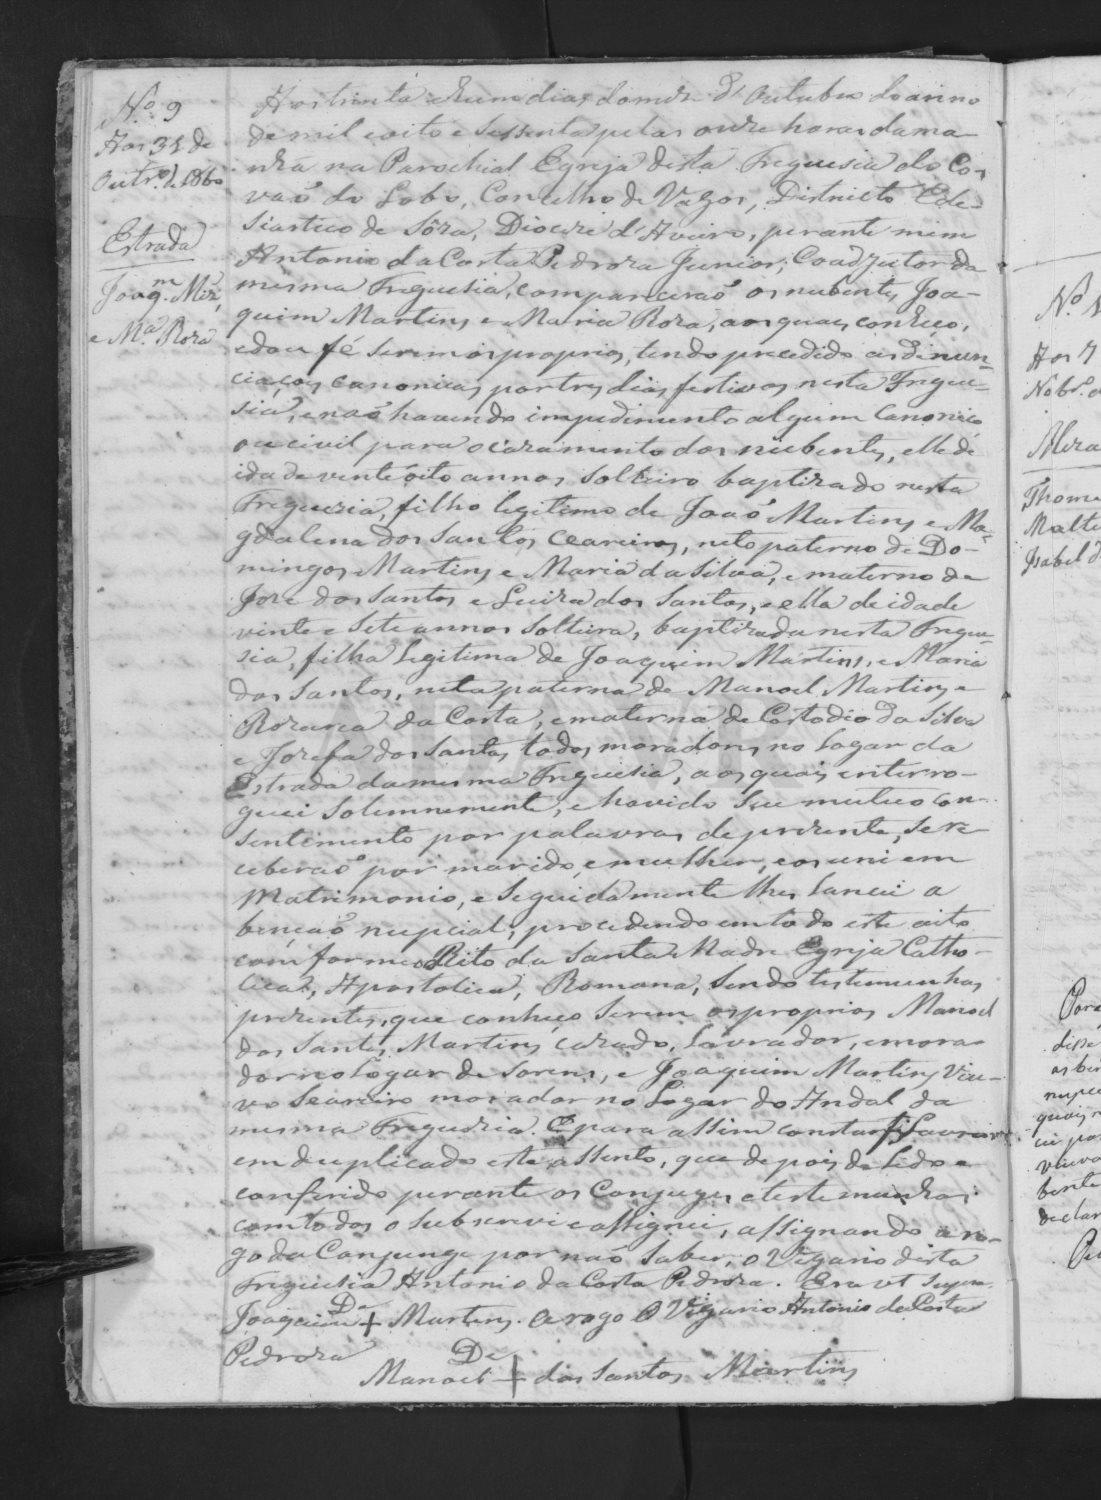 Nº 9
Aos 31 de
Outr.º de 1860
Estrada
Joaq.m Miz,
e M.ª Roza
Aos trinta e hum dias do mez d'Outubro do anno
de mil e oito e sessenta pelas onze horas da ma-
nha na Parochial Egreja desta Freguesia do Co-
vaõ do Lobo, Concelho de Vagos, Districto Ecle-
siastico de Sôza, Diocese d'Aveiro, perante mim
Antonio da Costa Pedroza Junior, Coadjutor da
mesma Freguesia, comparceraõ os nubentes Joa-
quim Martins e Maria Roza, aos quaes conheço,
e dou fé serem os proprios, tendo precedido as denun-
ciaçoes canonicas por tres dias festivos nesta Fregue-
sia, e naõ havendo impedimento algum canonico
ou civil para o cazamento dos nubentes, elle de
idade vinte oito annos solteiro baptizado nesta
Freguezia, filho legitimo de Joaõ Martins e Ma-
gdalena dos Santos Ceareiros, neto paterno de Do-
mingos Martins e Maria da Silva, e materno de
Joze dos Santos e Luiza dos Santos, e ella de idade
vinte e sete annos solteira, baptizada nesta Fregue-
sia, filha legitima de Joaquim Martins, e Maria
dos Santos, neta paterna de Manoel Martins e
Rozarea da Costa, e materna de Costodio da Silva
e Jozefa dos Santos todos moradores no Logar da
Estrada da mesma Freguesia, aos quais interro-
guei solemnemente, e havido seu mutuo con-
sentimento por palavras de prezente, se re-
ceberaõ por marido, e mulher, e os uni em
Matrimonio, e seguidamente lhes lancei a
bençaõ nupcial, procedendo em todo este acto
conforme o Rito da Santa Madre Egreja Catho-
lica, Apostolica, Romana, sendo testemunhas
prezentes, que conheço serem os proprios Manoel
dos Santos Martins cazado, Lavrador, e mora-
dor no Logar de Sorens, e Joaquim Martins Viu-
vo Seareiro morador no Logar do Andal da
mesma Freguezia. E para assim constar
em duplicado este assento, que depois de Lido e
conferido perante os Conjuges e testemunhas
com todos o subscrevi e assignei, assignando a ro-
go da Conjunge por naõ saber, o Vigario desta
Freguesia Antonio da Costa Pedroza. Era ut supra.
Joaquim De + Martins. A rogo O Vigario Antonio da Costa
Pedroza
Manoel De + dos Santos Martins
Nº
Aos 7
Nobr.º
Thome
Isabel